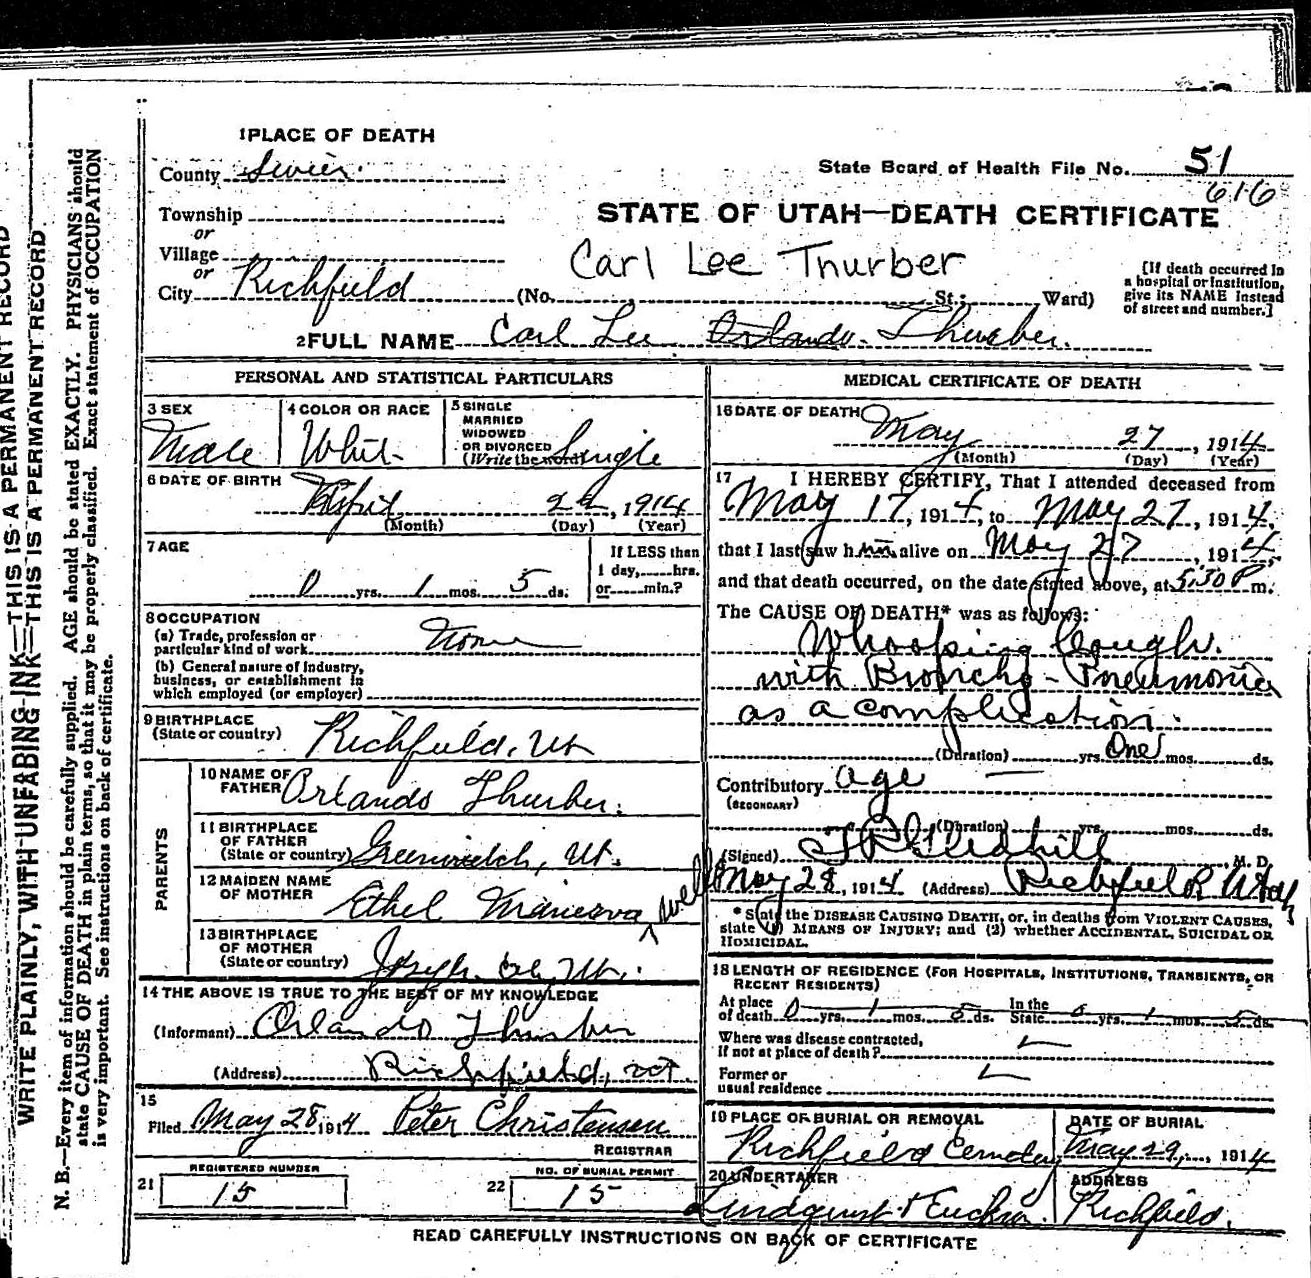 1 PLACE OF DEATH
County Sevier.
State Board of Health File No. 51
616
Township
or
Village
or
City Richfield
STATE OF UTAH—DEATH CERTIFICATE
Carl Lee Thurber
(No. St.; Ward)
[If death occurred in
a hospital or institution,
give its NAME instead
of street and number.]
2 FULL NAME Carl Lee Orlando Thurber.
PERSONAL AND STATISTICAL PARTICULARS
3 SEX
Male
4 COLOR OR RACE
Whit
5 SINGLE
MARRIED
WIDOWED
OR DIVORCED
(Write the word) Single
6 DATE OF BIRTH
22, 1914
(Month) (Day) (Year)
7 AGE
0 yrs. 1 mos. 5 ds.
If LESS than
1 day, hrs.
or min.?
8 OCCUPATION
(a) Trade, profession or
particular kind of work None
(b) General nature of Industry,
business, or establishment in
which employed (or employer)
9 BIRTHPLACE
(State or country) Richfield, Ut
PARENTS
10 NAME OF
FATHER Orlando Thurber.
11 BIRTHPLACE
OF FATHER
(State or country) Greenwich, Ut.
12 MAIDEN NAME
OF MOTHER Ethel Manerva
13 BIRTHPLACE
OF MOTHER
(State or country) Joseph Ut.
14 THE ABOVE IS TRUE TO THE BEST OF MY KNOWLEDGE
(Informant) Orlando Thurber
(Address) Richfield, Ut.
15
Filed May 28 1914 Peter Christensen
REGISTRAR
21 REGISTERED NUMBER
15
22 NO. OF BURIAL PERMIT
15
MEDICAL CERTIFICATE OF DEATH
16 DATE OF DEATH May 27, 1914
(Month) (Day) (Year)
17 I HEREBY CERTIFY, That I attended deceased from
May 17, 1914, to May 27, 1914,
that I last saw him alive on May 27, 1914,
and that death occurred, on the date stated above, at 5:30 P m.
The CAUSE OF DEATH* was as follows:
Whooping Cough.
with Broncho-Pneumonia
as a complication.
(Duration) yrs. One mos. ds.
Contributory age
(SECONDARY)
(Duration) yrs. mos. ds.
(Signed) M. D.
May 28, 1914 (Address) Richfield Utah
* State the DISEASE CAUSING DEATH, or, in deaths from VIOLENT CAUSES,
state (1) MEANS OF INJURY; and (2) whether ACCIDENTAL, SUICIDAL OR
HOMICIDAL.
18 LENGTH OF RESIDENCE (FOR HOSPITALS, INSTITUTIONS, TRANSIENTS, OR
RECENT RESIDENTS)
At place
of death 0 yrs. 1 mos. 5 ds. In the
State 0 yrs. 1 mos. 5 ds.
Where was disease contracted,
if not at place of death?
Former or
usual residence
19 PLACE OF BURIAL OR REMOVAL
Richfield Cemetery
DATE OF BURIAL
May 29, 1914
20 UNDERTAKER
Lindquist
ADDRESS
Richfield.
READ CAREFULLY INSTRUCTIONS ON BACK OF CERTIFICATE
WRITE PLAINLY, WITH UNFADING INK—THIS IS A PERMANENT RECORD
N. B.—Every item of information should be carefully supplied. AGE should be stated EXACTLY. PHYSICIANS should
state CAUSE OF DEATH in plain terms, so that it may be properly classified. Exact statement of OCCUPATION
is very important. See instructions on back of certificate.